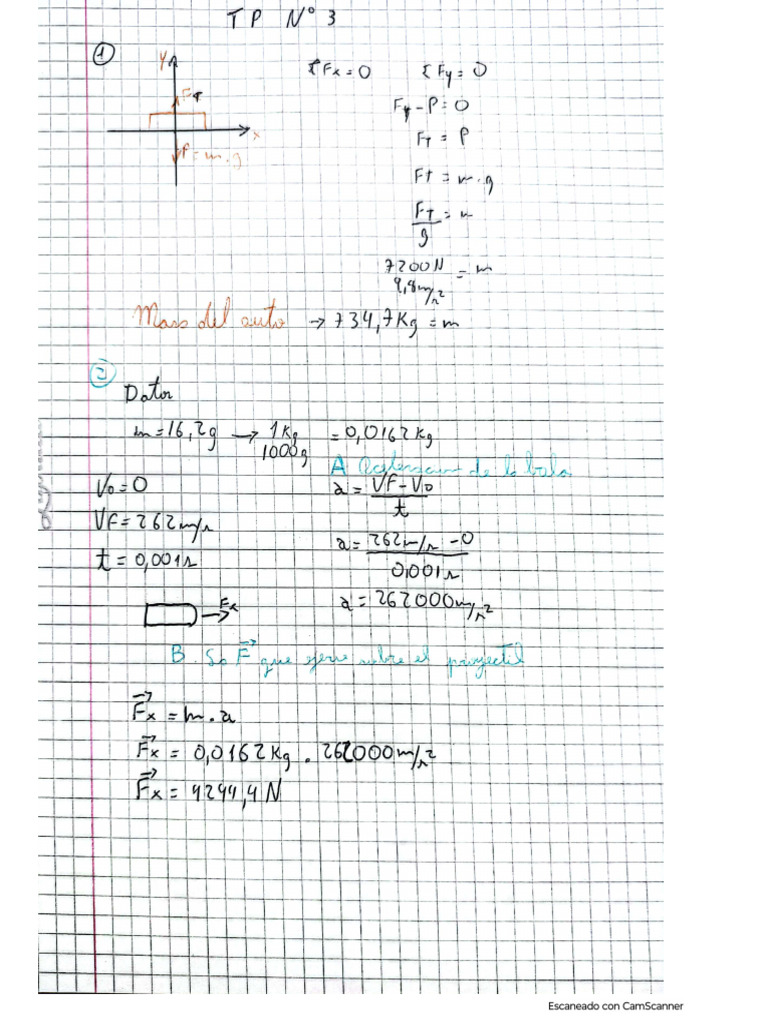 TP Nº 3
1
y
FT
x
P=m.g
ΣFx=0
ΣFy=0
FT-P=0
FT=P
Ft=m.g
FT/g=m
7200N/9,8m/s²=m
Masa del auto → 734,7Kg=m
2
Datos
m=16,2g → 1Kg/1000g =0,0162Kg
A Aceleracion de la bala
V0=0
a=VF-V0/t
VF=262m/s
a=262m/s-0/0,001s
t=0,001s
Fx
a=262000m/s²
B. La F⃗ que ejerce sobre el proyectil
F⃗x=m.a
F⃗x=0,0162Kg.262000m/s²
F⃗x=4244,4N
Escaneado con CamScanner